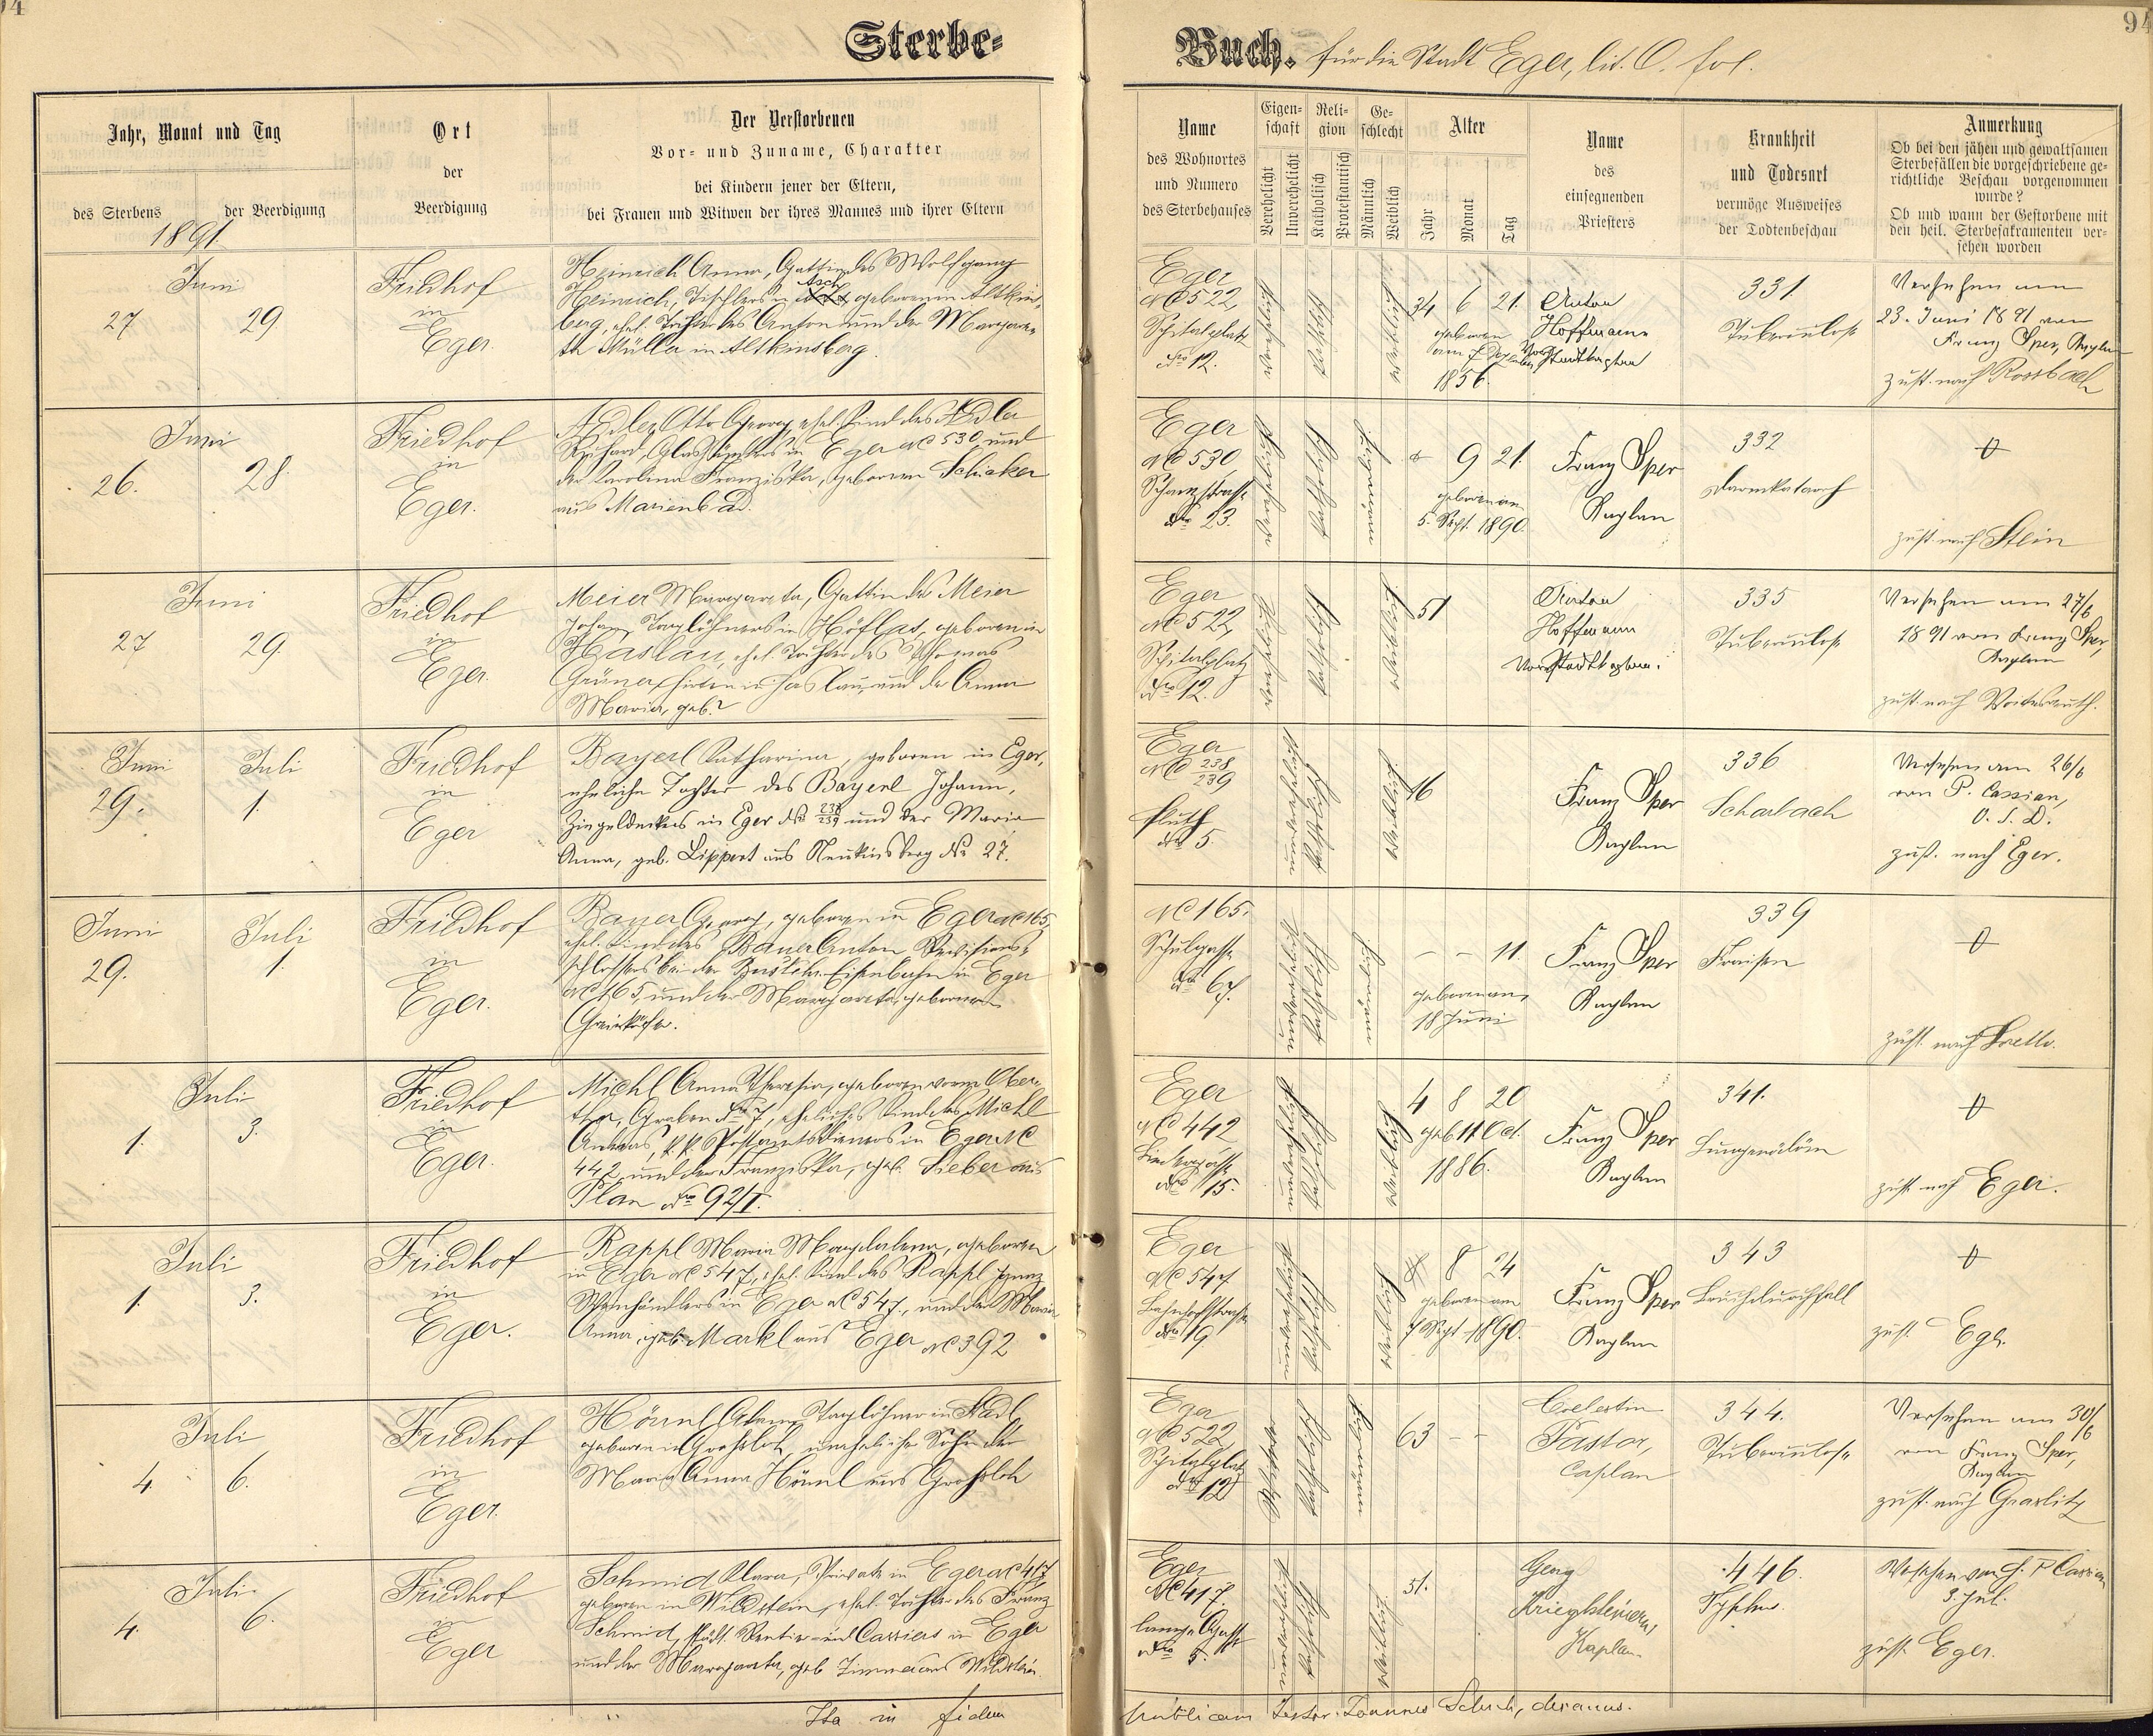 94
94
Sterbe-
Buch. für die Stadt Eger, lit. O. fol.
Jahr, Monat und Tag
des Sterbens
der Beerdigung
1891.
Ort
der
Beerdigung
Der Verstorbenen
Vor- und Zuname, Charakter
bei Kindern jener der Eltern,
bei Frauen und Witwen der ihres Mannes und ihrer Eltern
Name
des Wohnortes
und Numero
des Sterbehauses
Eigen-
schaft
Verehelicht
Unverehelicht
Reli-
gion
Katholisch
Protestantisch
Ge-
schlecht
Männlich
Weiblich
Alter
Jahr
Monat
Tag
Name
des
einsegnenden
Priesters
Krankheit
und Todesart
vermöge Ausweises
der Todtenbeschau
Anmerkung
Ob bei den jähen und gewaltsamen
Sterbefällen die vorgeschriebene ge-
richtliche Beschau vorgenommen
wurde?
Ob und wann der Gestorbene mit
den heil. Sterbesakramenten ver-
sehen worden
Juni
27
29
Friedhof
in
Eger.
Heinrich Anna, Gattin des Wolfgang
Heinrich, Tischlers in Asch, geboren in Altkins-
berg, ehel. Tochter des Anton und der Margare-
tha Müller in Altkinsberg.
Eger
NC 522,
Spitalplatz
No 12.
weiblich
34 6 21.
geboren
am 7 Dezember
1856.
Anton
Hoffmann
Vorstadtkaplan
331.
Tuberculose
Versehen am
23. Juni 1891 von
Franz Sper, Kaplan
zust. nach Rossbach
Juni
26.
28.
Friedhof
in
Eger.
Adler Otto Georg, ehel. Kind des Adler
Richard, in Eger NC 530, und
der Karolina Franziska, geborenen Schicker
aus Marienbad.
Eger
NC 530,
Schanzstrasse
No 23.
9 21.
geboren am
5. Sept. 1890.
Franz Sper
Kaplan
332
Darmkatarrh
zust. nach Stein
Juni
27
29.
Friedhof
in
Eger.
Meier Margareta, Gattin des Meier
Johann, Taglöhners in Höflas, geboren in
Haslau, ehel. Tochter des Thomas
Grüner, Hirten in Haslau, und der Anna
Maria, geb.?
Eger
NC 522,
Spitalplatz
No 12.
weiblich
51
Anton
Hoffmann
Vorstadtkaplan.
335
Tuberculose
Versehen am 27/6
1891 von Franz Sper,
Kaplan
zust. nach Voitersreuth.
Juni
29.
Juli
1.
Friedhof
in
Eger
Bayerl Katharina, geboren in Eger,
eheliche Tochter des Bayerl Johann,
Ziegeldeckers in Eger No 238/239 und der Maria
Anna, geb. Lippert aus Neukinsberg No 27.
Eger
NC 238
239
No 5
Weiblich
16
Franz Sper
Kaplan
336
Scharlach
Versehen am 26/6
von P. Cassian,
O. S. D.
zust. nach Eger.
Juni
29.
Juli
1.
Friedhof
in
Eger.
Bauer Georg, geboren in Eger NC 165,
ehel. Kind des Bauer Anton Revisions-
schlossers bei der Buschtehr. Eisenbahn in Eger
NC 165, und der Margareta, geborenen
NC 165.
Schulgasse
No 67.
– – 11.
geboren am
18 Juni
Franz Sper
Kaplan
339
Fraisen
zust. nach Loretto.
Juli
1.
3.
Friedhof
in
Eger.
Michl Anna Theresia, geboren vorm Ober-
thor, Graben No 7, eheliches Kind des Michl
Andreas, k.k. Postamtsdieners in Eger NC
442 und der Franziska, geb. Sieber aus
Plan No 92/I.
Eger
NC 442
No 15.
Weiblich
4 8 20
geb 11 Oct.
1886.
Franz Sper
Kaplan
341.
Lungenödem
zust. nach Eger.
Juli
1.
3.
Friedhof
in
Eger.
Rappl Maria Magdalena, geboren
in Eger NC 547, ehel. Kind des Rappl Ignaz
in Eger NC 547, und der Maria
Anna, geb. Markl aus Eger NC 392
Eger
NC 547.
Bahnhofstrasse
No 19.
Weiblich
8 24
geboren am
7 Sept 1890.
Franz Sper
Kaplan
343
Brechdurchfall
zust. Eger.
Juli
4.
6.
Friedhof
in
Eger.
Hörnl Adam, Taglöhner in Stadl
geboren in Grossloh, unehelicher Sohn der
Maria Anna Hörnl aus Grossloh
Eger
NC 522
Spitalplatz
No 12
63 – –
Coelestin
Pastor,
Caplan
344.
Tuberculose
Versehen am 30/6
von Franz Sper,
Kaplan
zust. nach Graslitz
Juli
4.
6.
Friedhof
in
Eger
Schmid Klara, Private in Eger NC 417,
geboren in Wildstein, ehel. Tochter des Franz
Schmid, städt. Rentie- und Cassiers in Eger
und der Margareta, geb. Zimmer aus Wildstein.
Eger
NC 417.
lange Gasse
No 5.
Weiblich
51.
Georg
Kaplan
446.
Typhus.
Versehen von P. Cassian
3. Juli.
zust. Eger.
Ita in fidem
publicam testor. Joannes Schuh, decanus.